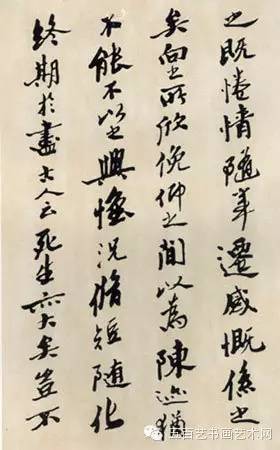 之既惓情隨事遷感慨係之
矣向之所欣俛仰之間以為陳迹猶
不能不以之興懷況脩短随化
終期於盡古人云死生亦大矣豈不
五百艺书画艺术网